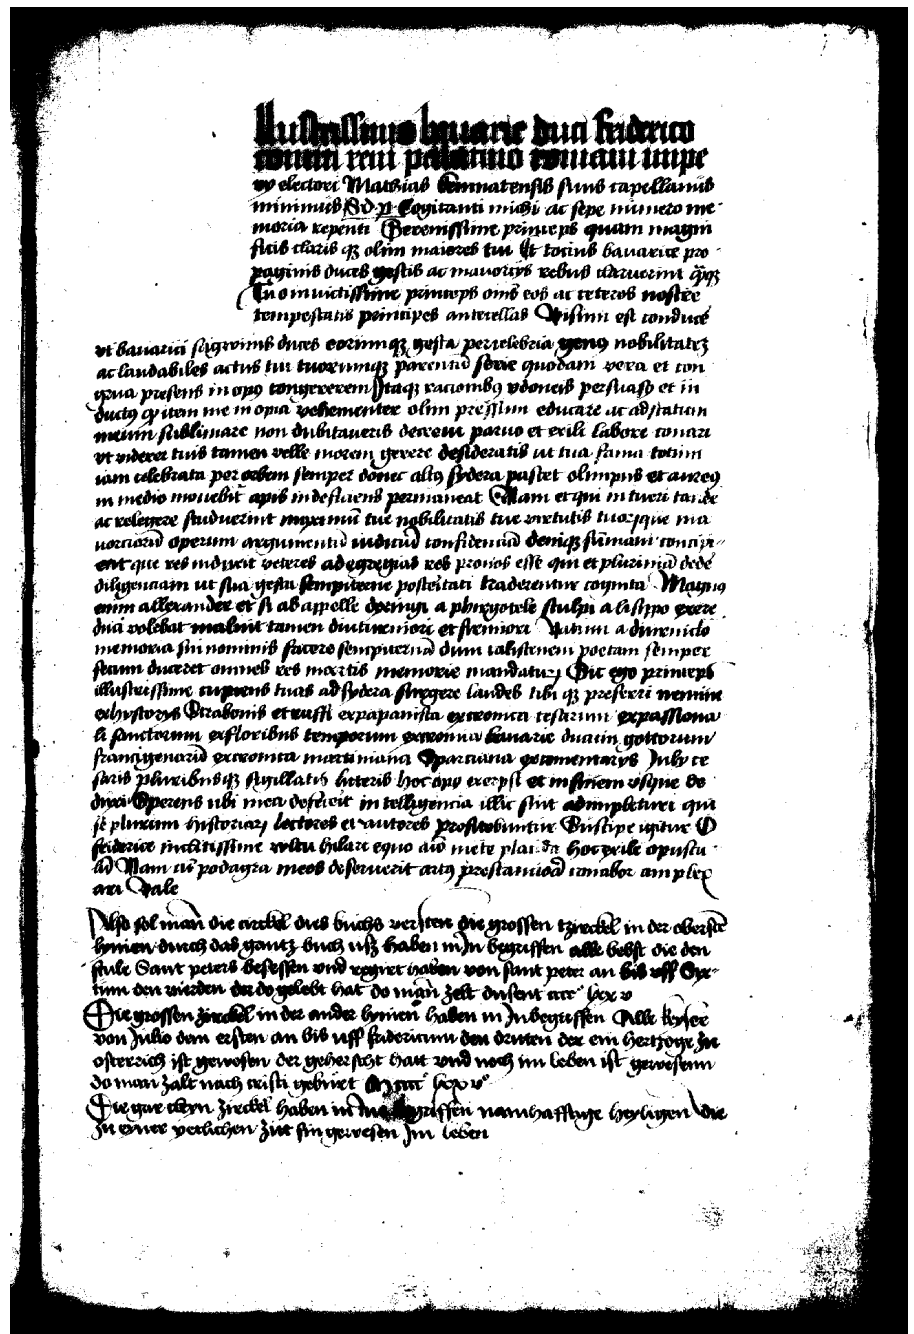 Illustrissimo bauarie duci friderico
comiti reni palatino romani impe
ry electori Mathias kemnatensis suus capellanus
minimus S. d. p. Cogitanti michi ac sepe numero me
moria repenti Serenissime princeps quam magni
ficis claris qz olim maiores tui Et totius bauarice pro
paginis duces gestis ac mauortys rebus claruerint
Tu o inuictissime princeps oms eos ac ceteros nostre
tempestatis principes antecellas Visum est conduce
vt bauarici sagwinis duces eorumqz gesta percelebria genus nobilitatez
ac laudabiles actus tui tuorumqz parentum serie quodam vera et con
grua presens in opus congererem Itaqz racionibus ydoneis persuasus et in
ductus item me inopia vehementer olim pressum educare ac ad statum
meum sublimare non dubitaueris decreui paruo et exili labore conari
vt viderer tuis tamen velle morem gerere desideratis ut tua fama totum
iam celebrata per orbem semper donec altus sydera pascet olimpus et aureus
in medio mouebit apis indeficiens permaneat Nam et qui intueri tande
ac relegere studuerint maximum tue nobilitatis tue virtutis tuorumque ma
uorciorum operum argumentum iudicium confidenciam deniqz sumam concipi
ent que res induxit veteres ad egregias res pronos esse qui et plurimam dede
diligenciam ut sua gesta sempiterne posteritati traderentur cognita Magnus
enim allexander et si ab appelle depingi a phirgotele sculpi a lisippo excre
duci volebat maluit tamen diuturniori et firmiori
memoria sui nominis facere sempiternam dum calistenem poetam semper
secum duceret omnes res martis memorie mandaturum Sic ego princeps
illustrissime cupiens tuas ad sydera surgere laudes tibi qz preferri nemine
ex hystorys Strabonis et ruffi ex papanista ex cronica cesarum ex passiona
li sanctorum ex floribus temporum ex cronica bauarie ducum gottorum
francigenarum ex cronica martiniana Sparciana ex comentarys July ce
saris pluribusqz sigillatis litteris hoc opus excerpsi et in finem vsque de
duxi Sperans ubi mea defecerit intelligencia illic sint adimpleturi qui
se plurium historiarum lectores et autores profitebuntur Suscipe igitur O
friderice inuictissime vultu hilari equo animo mente placida hoc exile opuscu
lum Nam cum podagra meos deseruerit artus prestanciora conabor amplex
ari Vale
Also sol man die circkel dies buchs versten die grossen tzirckel in der obersten
lynien durch das gantz buch usz haben in In begriffen alle bebst die den
stule Sant peters besessen vnd regirt haben von sant peter an bis vff Six
tum den vierden der do gelebt hat do man zelt dusent cccc lxxv
Die grossen zirckel in der ander lynien haben in In begriffen Alle keyser
von Julio dem ersten an bis vff fridericum den dritten der ein hertzoge zu
osterrich ist gewesen der geherscht hatt vnd noch im leben ist gewesenn
do man zalt nach cristi geburt Mcccc lxxv
Die gar cleyn zirckel haben in In begriffen namhafftige heyligen die
zu einer yetlichen zitt sin gewesen Im leben